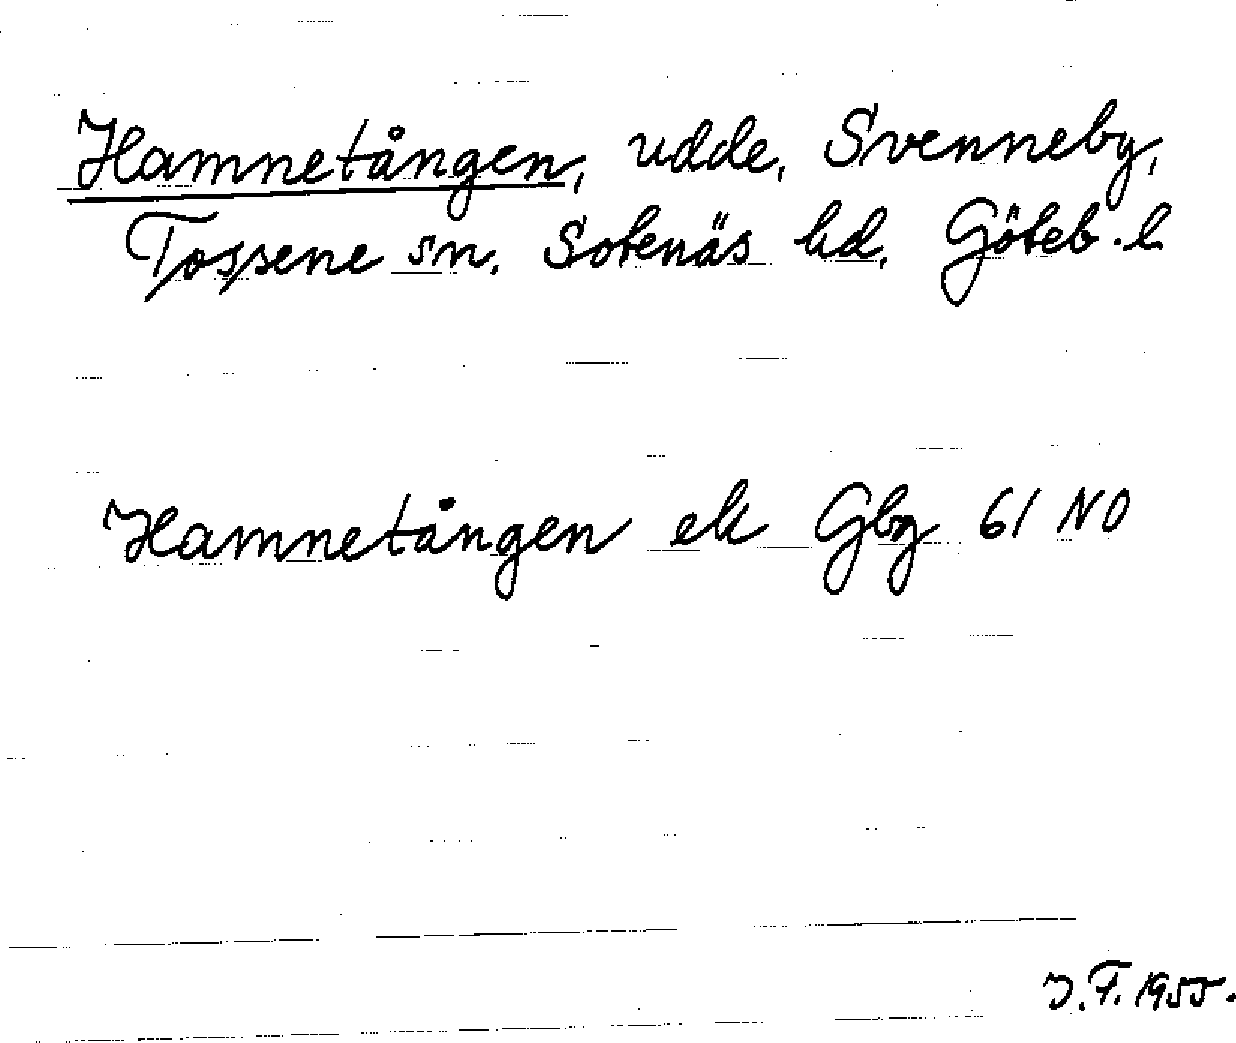 Hamnetången, udde, Svenneby,
Tossene sn. Sotenäs hd. Göteb. l
Hamnetången ek Gbg 61 NO
J.F. 1955.